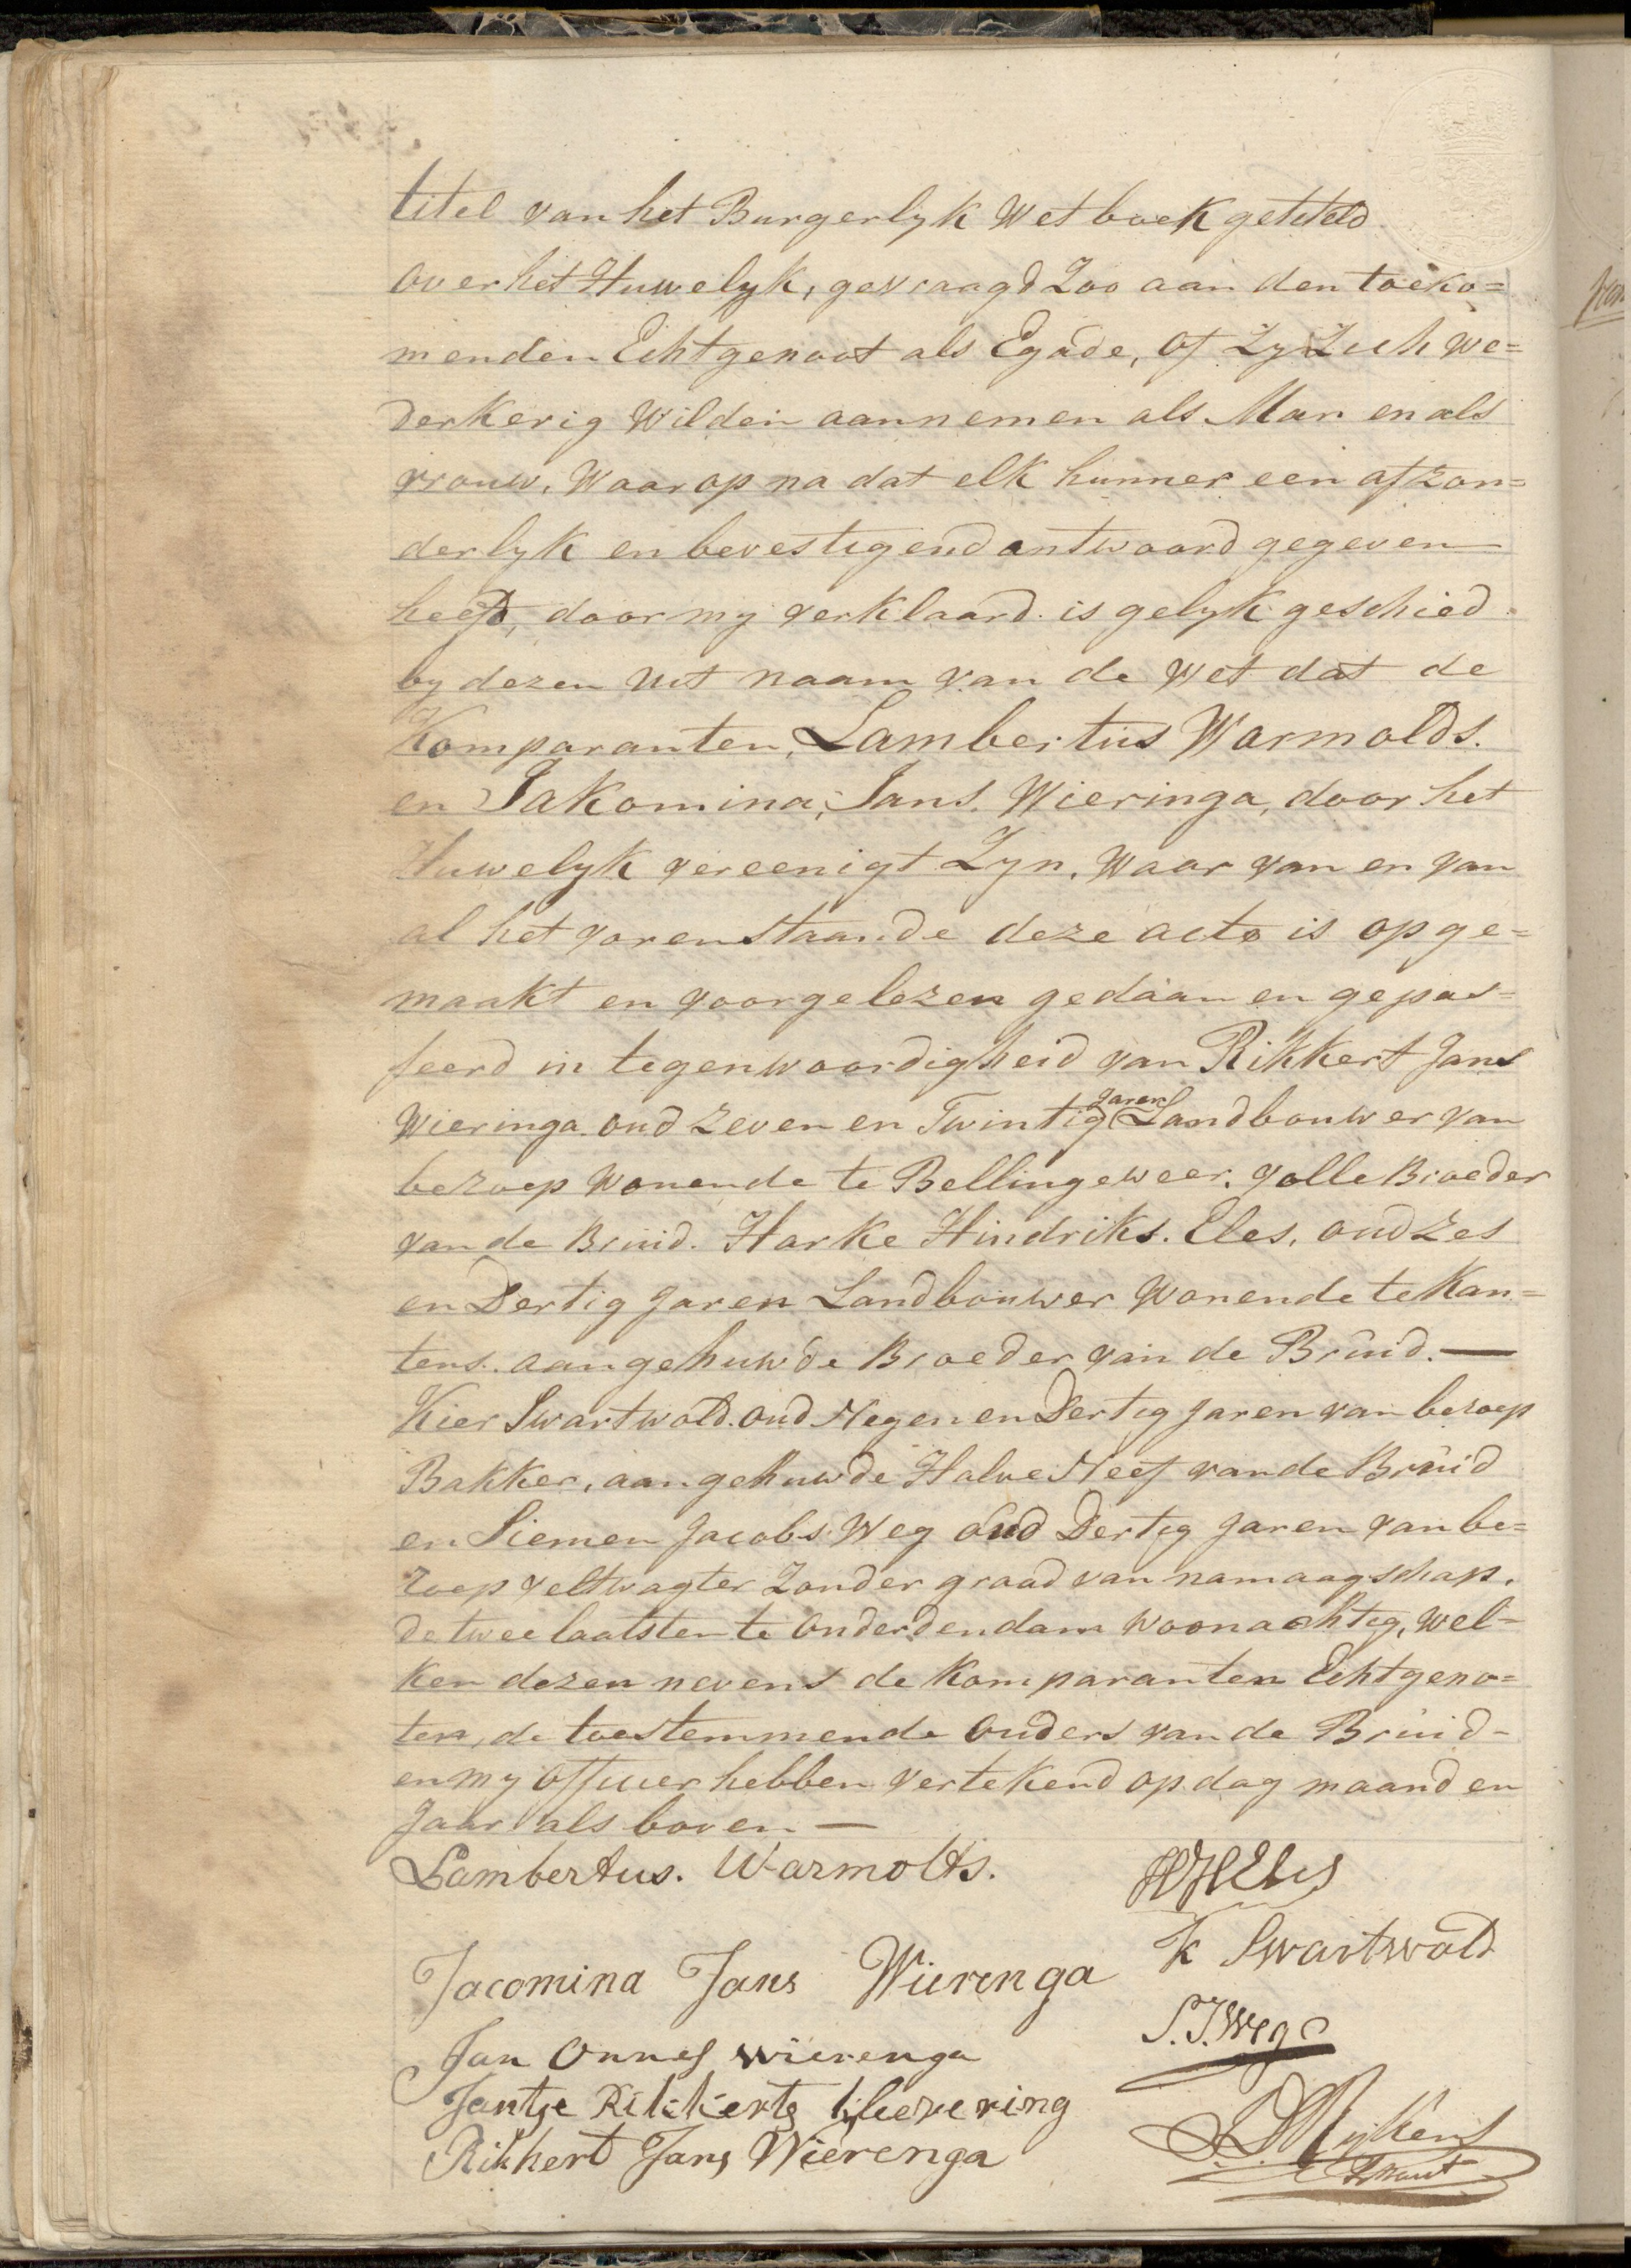 titel van het Burgerlyk Wetboek getiteld
over het Huwelyk, gevraagd Zoo aan den toeko=
menden Echtgenoot als Egade, of Zy Zich we=
derkerig Wilden aannemen als Man en als
vrouw, Waar op na dat elk hunner een afzon=
derlyk en bevestigend antwoord gegeven
heeft, door my verklaard is gelyk geschied
by dezen uit naam van de Wet dat de
Komparanten, Lambertus Warmolds.
en Jakomina, Jans. Wieringa, door het
Huwelyk vereenigt Zyn, Waar van en van
al het vorenstaande deze acte is opge=
maakt en voorgelezen gedaan en gepas=
seerd in tegenwoordigheid van Rikkert Jans
Wieringa oud Zeven en Twintig Jaren Landbouwer van
beroep Wonende te Bellingeweer, volle Broeder
van de Bruid. Harke Hindriks. Eles, oud Zes
en Dertig Jaren Landbouwer Wonende te Kan=
tens. aangehuwde Broeder van de Bruid. —
Kier Swartwold. oud Negen en Dertig Jaren van beroep
Bakker, aangehuwde Halve Neef van de Bruid
en Siemen Jacobs Weg oud Dertig Jaren van be=
roep veltwagter Zonder graad van namaagschap.
de twee laatsten te Onderdendam Woonachtig, Wel=
ken dezen nevens de Komparanten Echtgeno=
ten, de toestemmende Ouders van de Bruid-
en my Officier hebben vertekend op dag maand en
Jaar als boven —
Lambertus. Warmolts.
HHEles
Jacomina Jans Wierenga
K Swartwold
Jan Onnes Wierenga
S. J. Weg
Jantje Rikkerts Kleevering
Rikkert Jans Wierenga